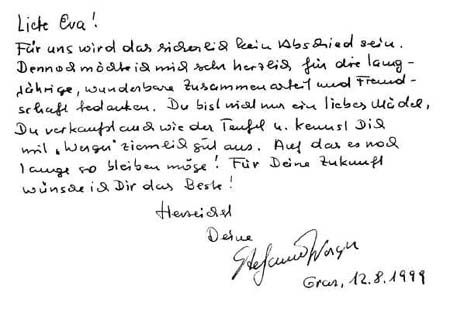 Liebe Eva!
Für uns wird das sicherlich kein Abschied sein.
Dennoch möchte ich mich sehr herzlich für die lang-
jährige, wunderbare Zusammenarbeit und Freund-
schaft bedanken. Du bist nicht nur ein liebes Mädel,
Du verkaufst auch wie der Teufel u. kennst Dich
mit "Worgin" ziemlich gut aus. Auf das es noch
lange so bleiben möge! Für Deine Zukunft
wünsche ich Dir das Beste!
Herzlichst
Deine
Graz, 12.8.1999